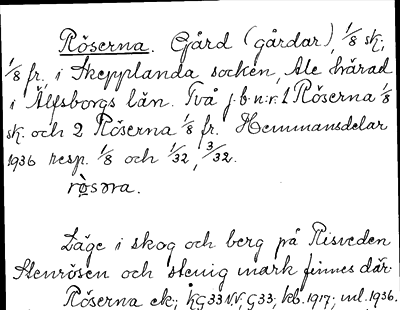 Röserna. Gård (gårdar), 1/8 sk.,
1/8 fr., i Skepplanda socken, Ale härad
i Älfsborgs län. Två j.b.n:r. 1 Röserna 1/8
sk. och 2 Röserna 1/8 fr. Hemmansdelar
1936 resp. 1/8 och 1/32, 3/32.
Läge i skog och berg på Risveden
Stenrösen och stenig mark finnes där.
Röserna ek.; kG33NV, G33; kb. 1917; ml. 1936.